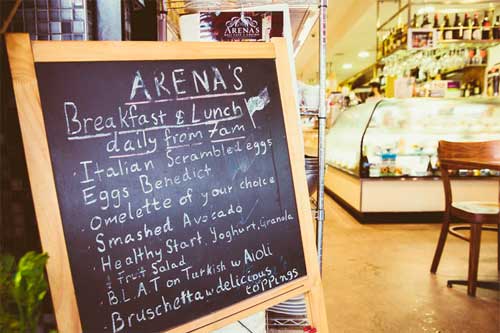 ARENA'S
ARENA'S
Breakfast & Lunch
daily from 7am
· Italian Scrambled eggs
Eggs Benedict
· Omelette of your choice
· Smashed Avocado
· Healthy Start, Yoghurt, Granola
& Fruit Salad
· B.L.A.T on Turkish w Aioli
· Bruschetta w delicious
toppings